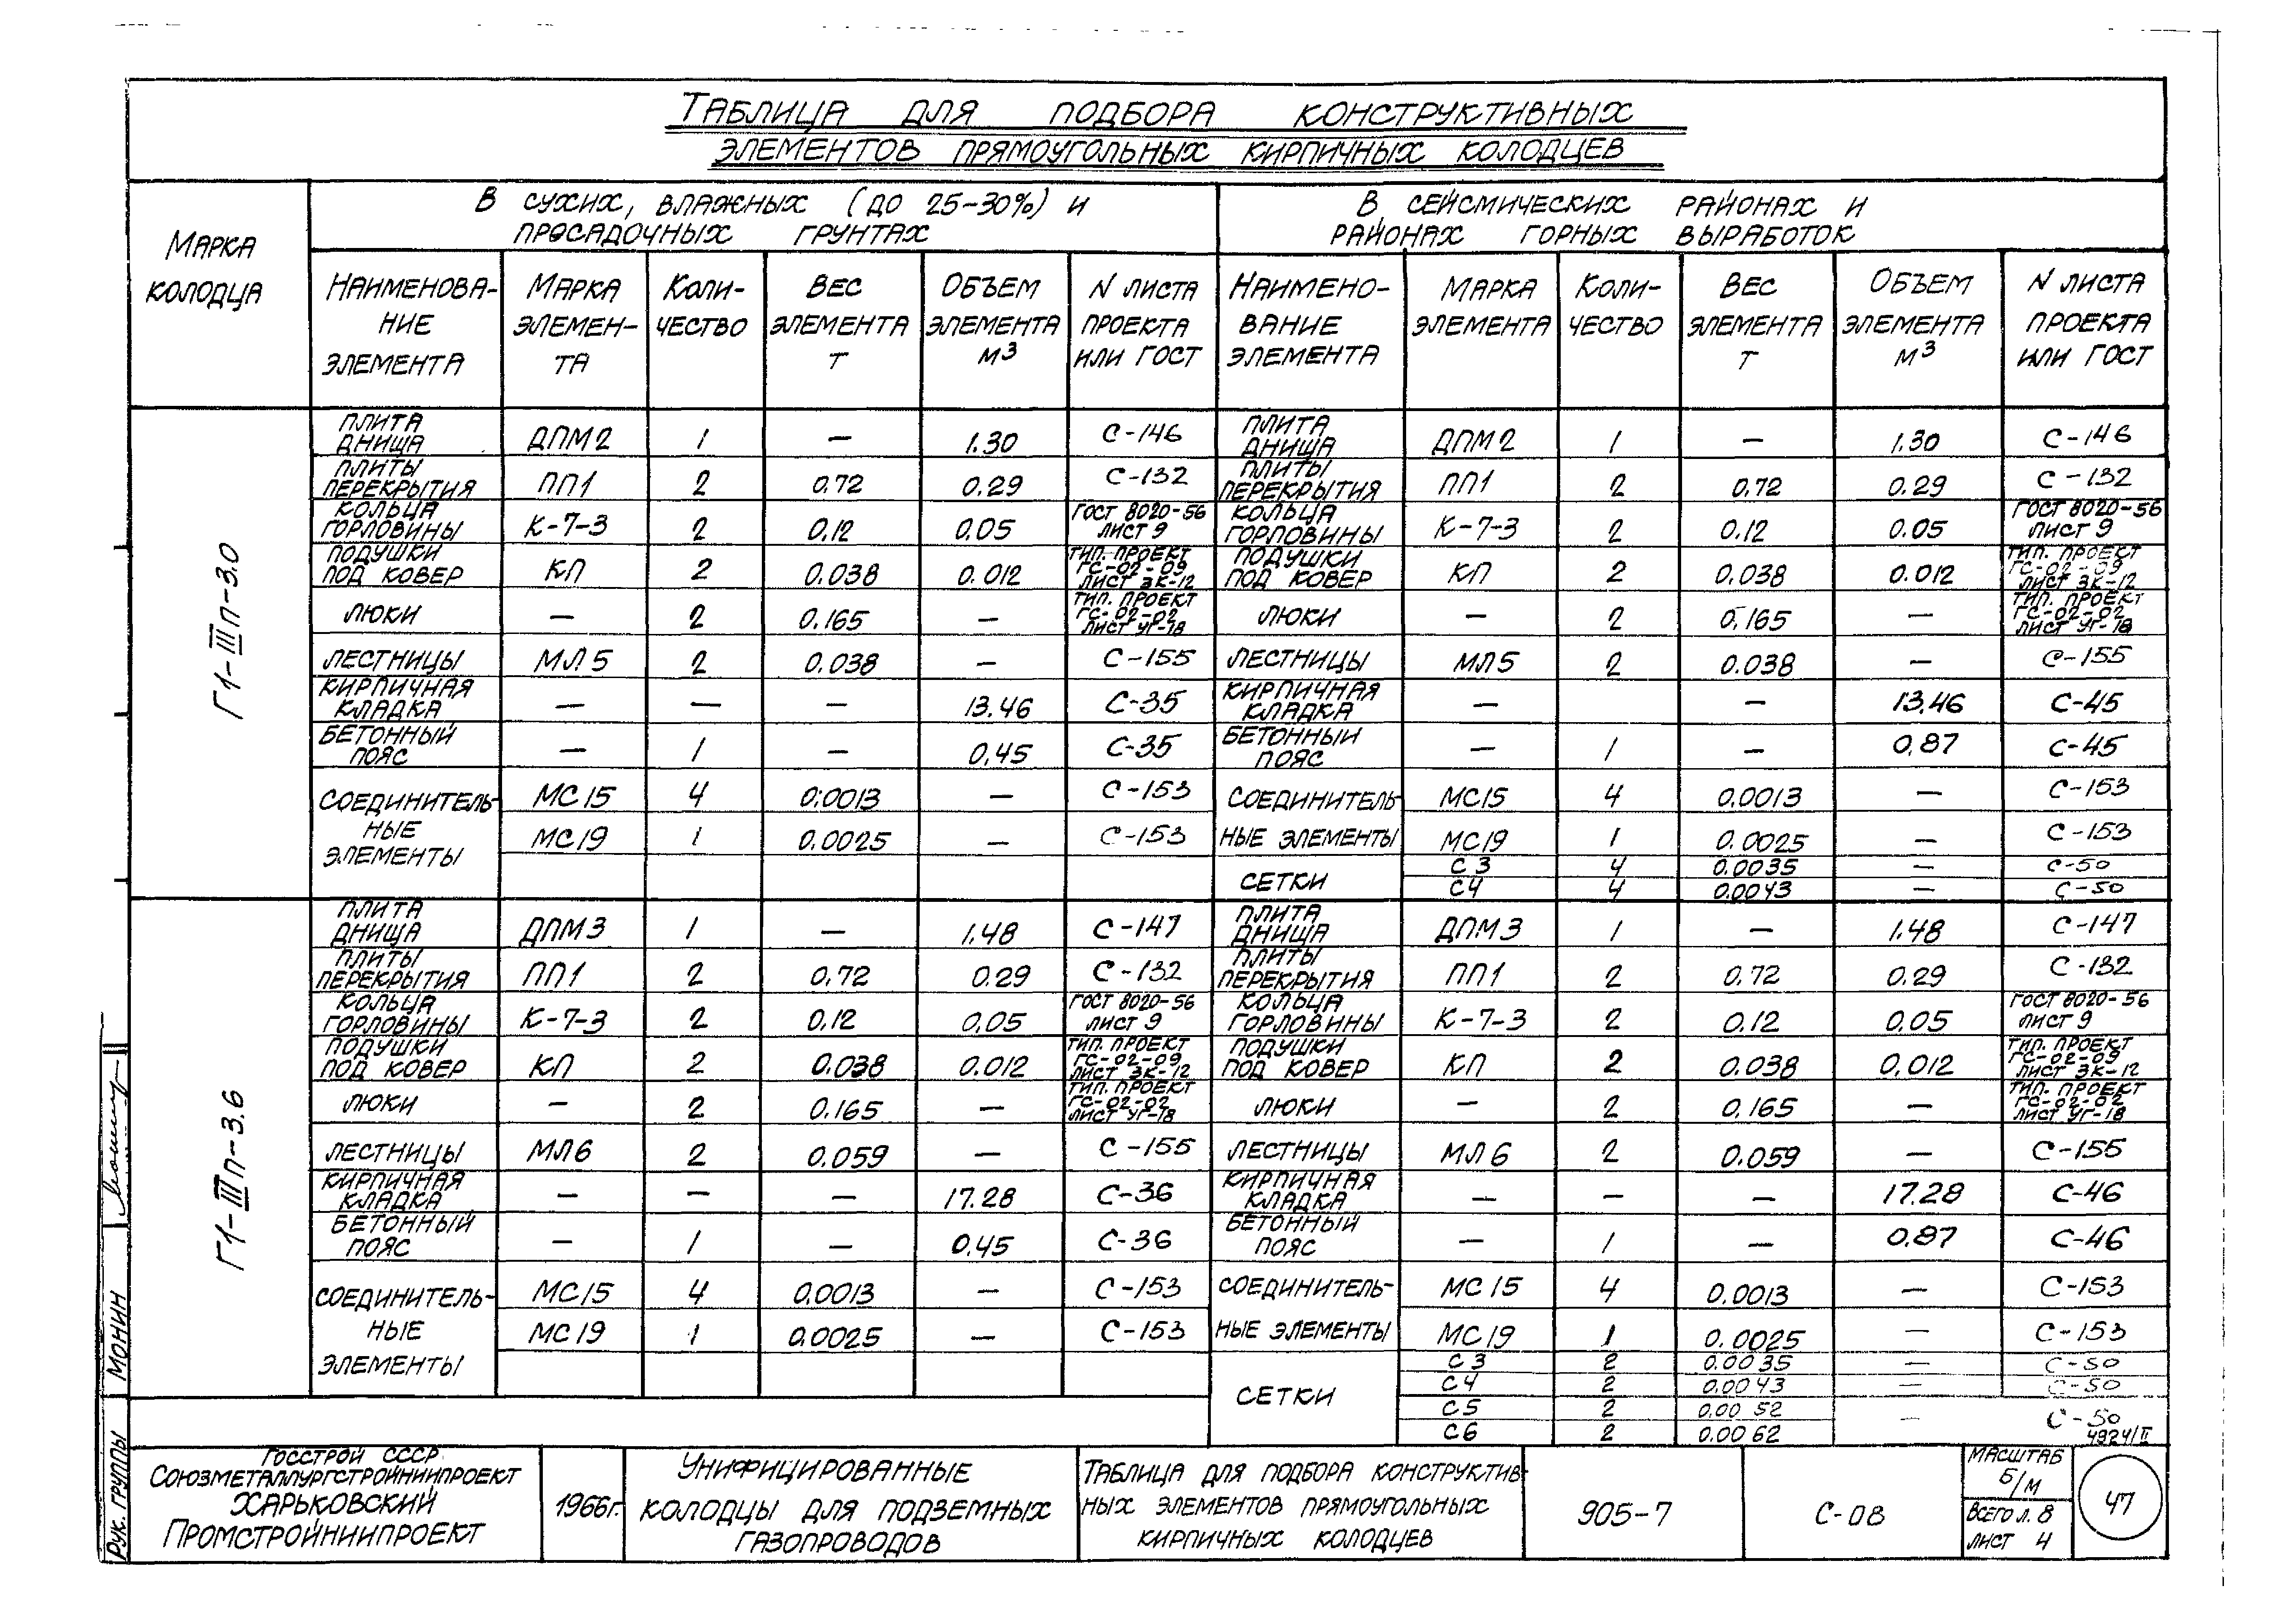 ТАБЛИЦА ДЛЯ ПОДБОРА КОНСТРУКТИВНЫХ
ЭЛЕМЕНТОВ ПРЯМОУГОЛЬНЫХ КИРПИЧНЫХ КОЛОДЦЕВ
МАРКА КОЛОДЦА
В СУХИХ, ВЛАЖНЫХ (ДО 25-30%) И
ПРОСАДОЧНЫХ ГРУНТАХ
В СЕЙСМИЧЕСКИХ РАЙОНАХ И
РАЙОНАХ ГОРНЫХ ВЫРАБОТОК
НАИМЕНОВА- МАРКА КОЛИ- ВЕС ОБЪЕМ N ЛИСТА НАИМЕНО- МАРКА КОЛИ- ВЕС ОБЪЕМ N ЛИСТА
НИЕ ЭЛЕМЕН- ЧЕСТВО ЭЛЕМЕНТА ЭЛЕМЕНТА ПРОЕКТА ВАНИЕ ЭЛЕМЕНТА ЧЕСТВО ЭЛЕМЕНТА ЭЛЕМЕНТА ПРОЕКТА
ЭЛЕМЕНТА ТА Т М3 ИЛИ ГОСТ ЭЛЕМЕНТА Т М3 ИЛИ ГОСТ
Г1-IIIп-3.0
ПЛИТА ДНИЩА ДПМ2 1 — 1.30 С-146 ПЛИТА ДНИЩА ДПМ2 1 — 1.30 С-146
ПЛИТЫ ПЕРЕКРЫТИЯ ПП1 2 0.72 0.29 С-132 ПЛИТЫ ПЕРЕКРЫТИЯ ПП1 2 0.72 0.29 С-132
КОЛЬЦА ГОРЛОВИНЫ К-7-3 2 0.12 0.05 ГОСТ 8020-56 ЛИСТ 9 КОЛЬЦА ГОРЛОВИНЫ К-7-3 2 0.12 0.05 ГОСТ 8020-56 ЛИСТ 9
ПОДУШКИ ПОД КОВЕР КП 2 0.038 0.012 ТИП. ПРОЕКТ ГС-02-09 ЛИСТ ЗК-12 ПОДУШКИ ПОД КОВЕР КП 2 0.038 0.012 ТИП. ПРОЕКТ ГС-02-09 ЛИСТ ЗК-12
ЛЮКИ — 2 0.165 — ТИП. ПРОЕКТ ГС-02-02 ЛИСТ УГ-18 ЛЮКИ — 2 0.165 — ТИП. ПРОЕКТ ГС-02-02 ЛИСТ УГ-18
ЛЕСТНИЦЫ МЛ5 2 0.038 — С-155 ЛЕСТНИЦЫ МЛ5 2 0.038 — С-155
КИРПИЧНАЯ КЛАДКА — — — 13.46 С-35 КИРПИЧНАЯ КЛАДКА — — 13.46 С-45
БЕТОННЫЙ ПОЯС — 1 — 0.45 С-35 БЕТОННЫЙ ПОЯС — 1 — 0.87 С-45
СОЕДИНИТЕЛЬ- МС15 4 0.0013 — С-153 СОЕДИНИТЕЛЬ- МС15 4 0.0013 — С-153
НЫЕ ЭЛЕМЕНТЫ МС19 1 0.0025 — С-153 НЫЕ ЭЛЕМЕНТЫ МС19 1 0.0025 — С-153
СЕТКИ С3 4 0.0035 — С-50
С4 4 0.0043 — С-50
Г1-IIIп-3.6
ПЛИТА ДНИЩА ДПМ3 1 — 1.48 С-147 ПЛИТА ДНИЩА ДПМ3 1 — 1.48 С-147
ПЛИТЫ ПЕРЕКРЫТИЯ ПП1 2 0.72 0.29 С-132 ПЛИТЫ ПЕРЕКРЫТИЯ ПП1 2 0.72 0.29 С-132
КОЛЬЦА ГОРЛОВИНЫ К-7-3 2 0.12 0.05 ГОСТ 8020-56 ЛИСТ 9 КОЛЬЦА ГОРЛОВИНЫ К-7-3 2 0.12 0.05 ГОСТ 8020-56 ЛИСТ 9
ПОДУШКИ ПОД КОВЕР КП 2 0.038 0.012 ТИП. ПРОЕКТ ГС-02-09 ЛИСТ ЗК-12 ПОДУШКИ ПОД КОВЕР КП 2 0.038 0.012 ТИП. ПРОЕКТ ГС-02-09 ЛИСТ ЗК-12
ЛЮКИ — 2 0.165 — ТИП. ПРОЕКТ ГС-02-02 ЛИСТ УГ-18 ЛЮКИ — 2 0.165 — ТИП. ПРОЕКТ ГС-02-02 ЛИСТ УГ-18
ЛЕСТНИЦЫ МЛ6 2 0.059 — С-155 ЛЕСТНИЦЫ МЛ6 2 0.059 — С-155
КИРПИЧНАЯ КЛАДКА — — — 17.28 С-36 КИРПИЧНАЯ КЛАДКА — — — 17.28 С-46
БЕТОННЫЙ ПОЯС — 1 — 0.45 С-36 БЕТОННЫЙ ПОЯС — 1 — 0.87 С-46
СОЕДИНИТЕЛЬ- МС15 4 0.0013 — С-153 СОЕДИНИТЕЛЬ- МС15 4 0.0013 — С-153
НЫЕ ЭЛЕМЕНТЫ МС19 1 0.0025 — С-153 НЫЕ ЭЛЕМЕНТЫ МС19 1 0.0025 — С-153
СЕТКИ С3 2 0.0035 — С-50
С4 2 0.0043 — С-50
С5 2 0.0052 — С-50
С6 2 0.0062
4924/II
РУК. ГРУППЫ МОНИН
ГОССТРОЙ СССР
СОЮЗМЕТАЛЛУРГСТРОЙНИИПРОЕКТ
ХАРЬКОВСКИЙ
ПРОМСТРОЙНИИПРОЕКТ
1966г.
УНИФИЦИРОВАННЫЕ
КОЛОДЦЫ ДЛЯ ПОДЗЕМНЫХ
ГАЗОПРОВОДОВ
ТАБЛИЦА ДЛЯ ПОДБОРА КОНСТРУКТИВ-
НЫХ ЭЛЕМЕНТОВ ПРЯМОУГОЛЬНЫХ
КИРПИЧНЫХ КОЛОДЦЕВ
905-7
С-08
МАСШТАБ
Б/М
ВСЕГО Л. 8
ЛИСТ 4
47